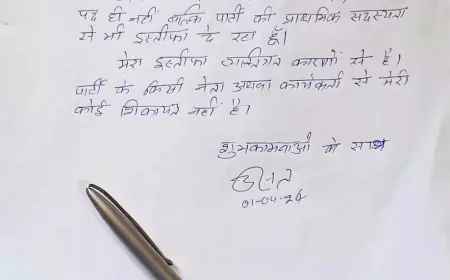 पद ही नहीं बल्कि पार्टी की प्राथमिक सदस्यता
से भी इस्तीफा दे रहा हूँ।
मेरा इस्तीफा व्यक्तिगत कारणों से है।
पार्टी के किसी नेता अथवा कार्यकर्ता से मेरी
कोई शिकायत नहीं है।
शुभकामनाओं के साथ
01-04-24